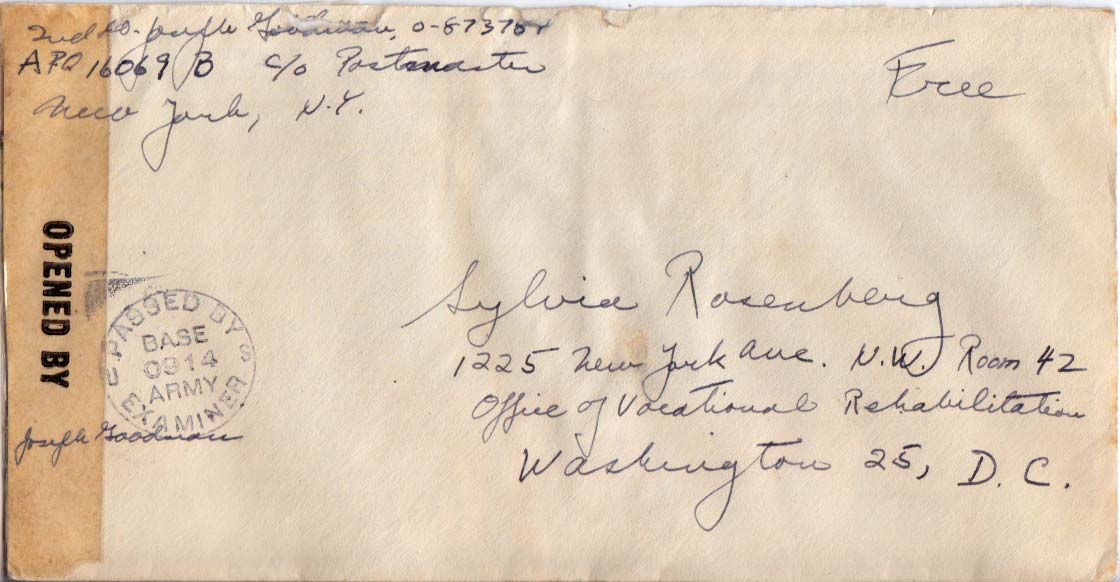 2nd Lt. Joseph Goodman, O-873764
APO 16069 B c/o Postmaster
New York, N.Y.
Free
OPENED BY
U.S.
PASSED BY
BASE
0914
ARMY
EXAMINER
Joseph Goodman
Sylvia Rosenberg
1225 New York Ave. N.W. Room 42
Office of Vocational Rehabilitation
Washington 25, D.C.